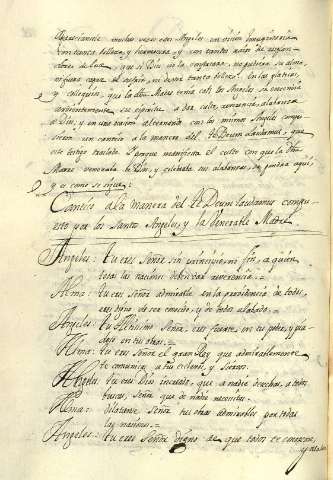 muchas veces con Angeles en vision imaginaria
con tanta belleza, y hermosura, y con tantos rayos de resplan-
dores de luz, que si Dios no la confortara, no pudiera su alma,
ni fuera capaz de sufrir, ni de ver tanta belleza. En las platicas,
y coloquios, que la dha Madre tenia con los Angeles se encendia
su espiritu a dar culto, reverencia, y alabanza
a Dios, y en una ocasion con los mismos Angeles compu-
sieron un cantico a la manera del Te Deum Laudamus, que
este tengo trasladado. Y porque manifiesta el culto con que la dha
Madre veneraba a Dios, y celebraba sus alabanzas, se pondra aqui,
y es como se sigue:
Cantico a la manera del Te Deum laudamus compu-
esto por los Santos Angeles, y la Venerable Madre.
Angeles: tu eres Señor sin principio, ni fin, a quien
todas las naciones deben dar reverencia. =
Alma: tu eres Señor admirable en la providencia de todos,
eres digno de ser temido, y de todos alabado. =
Angeles: tu Altisimo Señor, eres fuerte en tu poder, y pia-
doso en tus obras. =
Alma: tu eres Señor el gran Rey que admirablemente
te comunicas a tus criaturas, y Siervos.
Angeles: tu eres Dios increado, que a nadie desechas, a todos
buscas, Señor que de nadie necesitas.
Alma: dilatanse Señor tus obras admirables por todas
las naciones. =
Angeles: tu eres Señor digno de que todos te conozcan,
y alaben